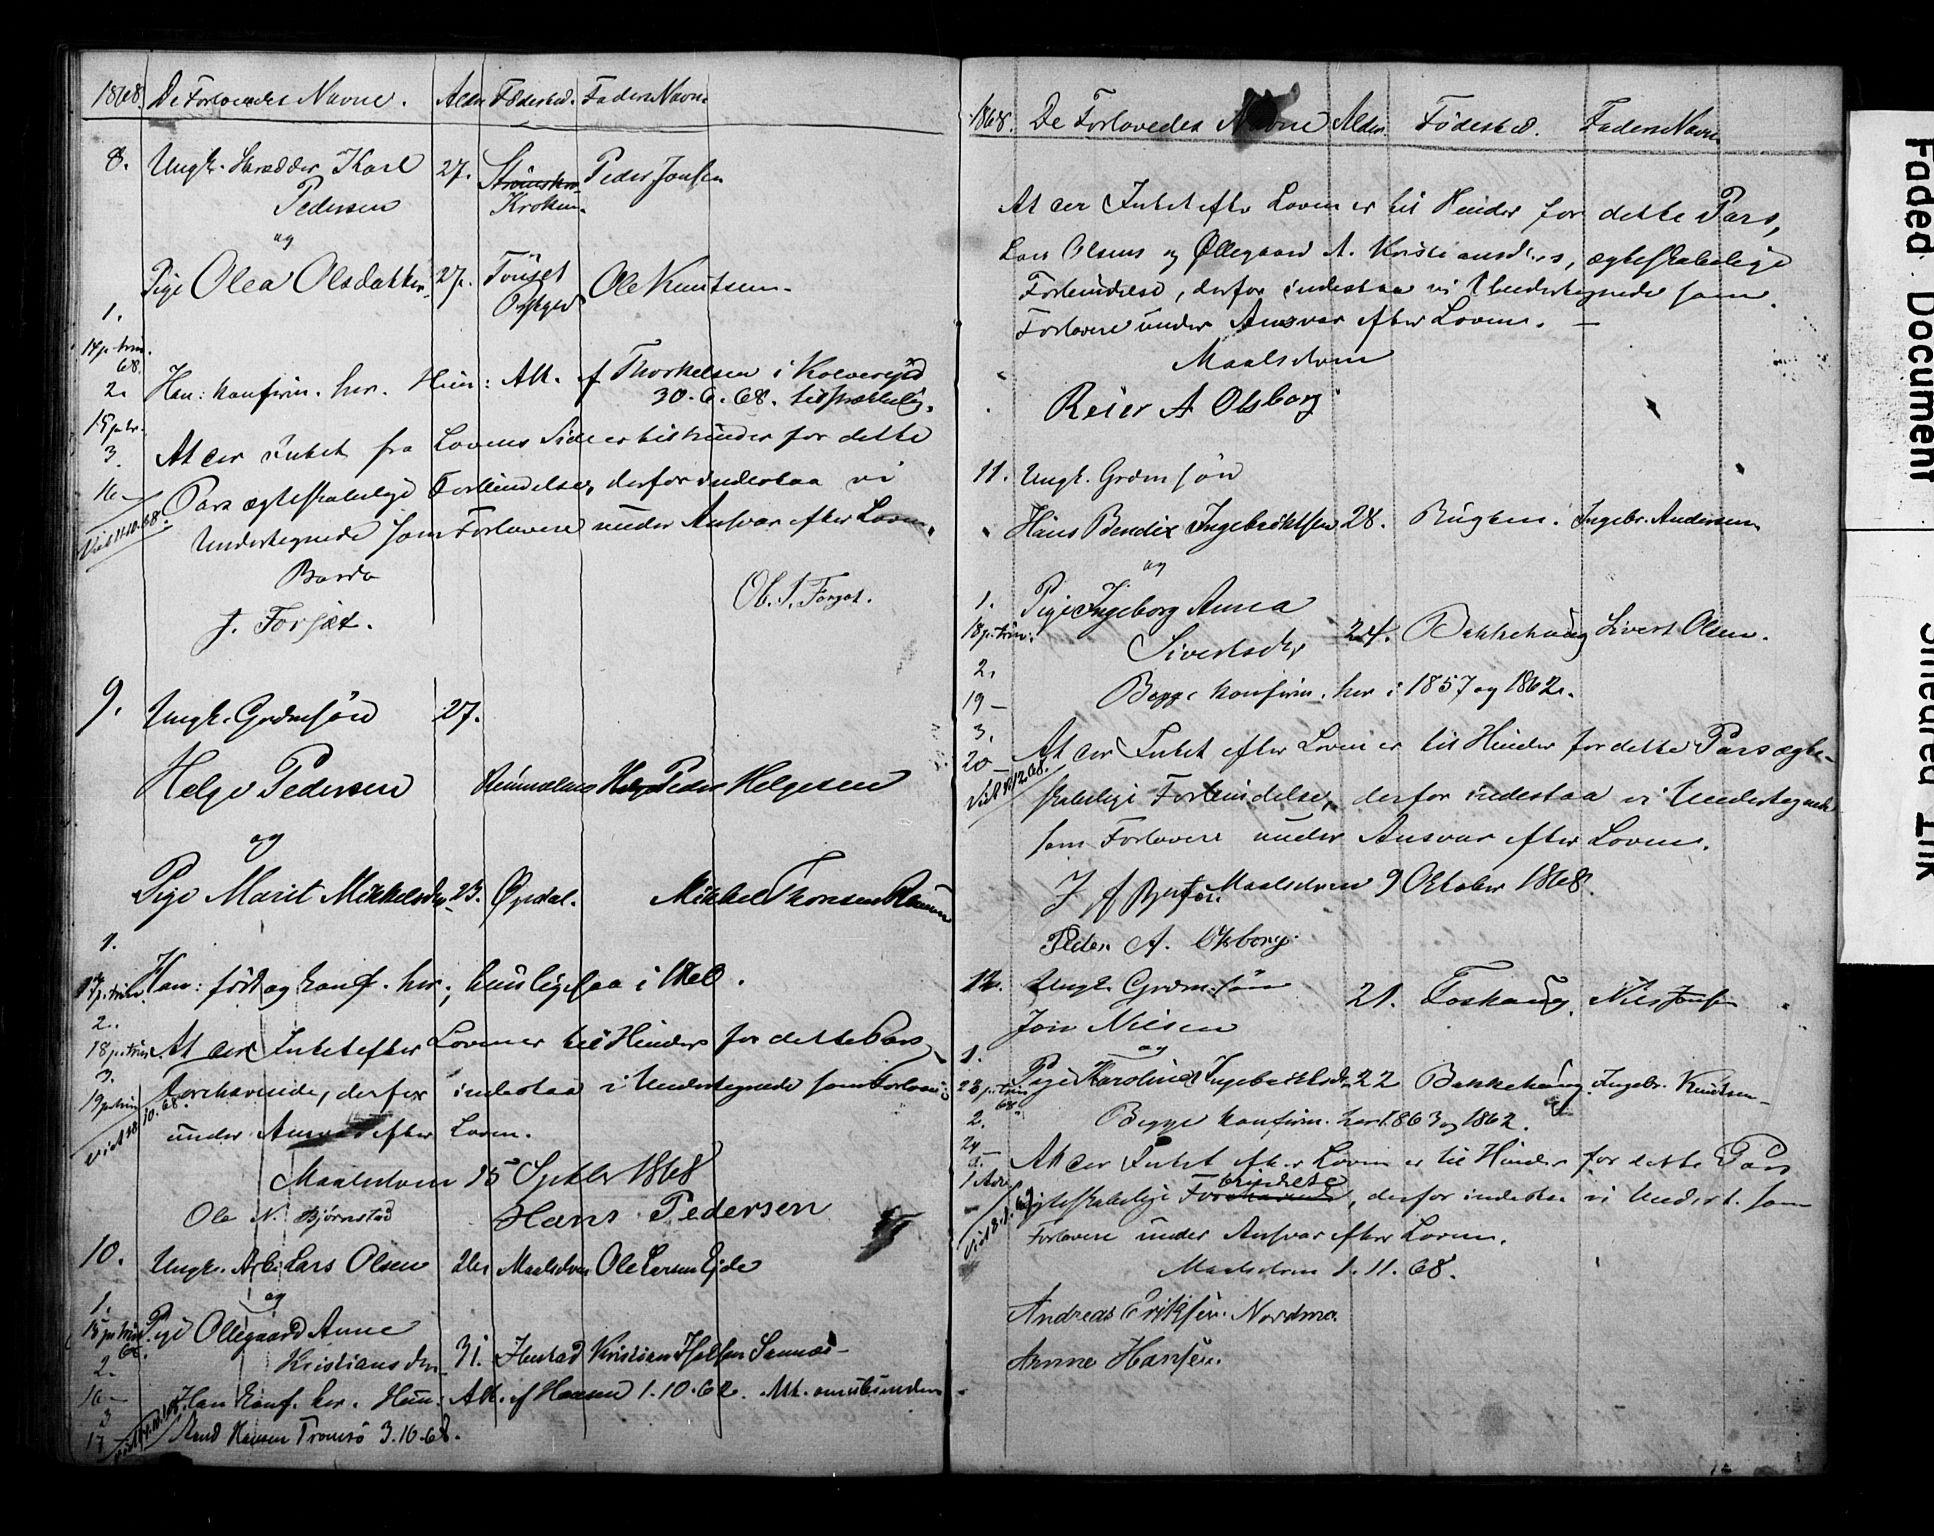 1868. De Forlovedes Navne. Alder Fødested. Faders Navn.
8. Ungk. Skrædder Karl 27. Strømskro Peder Jonsen
Pedersen Kroken.
og
Pige Olea Olsdatter 27. Tönset Ole Knutsen.
1.
14 p. trin. 68.
2. Han: konfirm. her. Hun: Att. f Thorkelsen i Kolvereid
30.6.68.
15 p. tr.
3. At der Intet fra Lovens Side er til Hinder for dette
16 — Pars ægteskabelige Forbindelse, derfor indestaa vi
Viet 11.10.68. Undertegnede som Forlovere under Ansvar efter Loven.
Bardo
J. Forset. Ob. J. Forset.
9. Ungk. Grdmsön 27.
Helge Pedersen Peder Helgesen
og
Pige Marit Mikkelsdtr 23. Opdal. Mikkel Thoresen
1.
17 p. trin. Han: födt og konf. her; hun ligesaa i
2.
18 p. trin. At der Intet efter Loven er til Hinder for dette Pars
3.
19 p. trin Forehavende, derfor indestaa vi Undertegnede som Forlovere
Viet 18.10.68. under Ansvar efter Loven.
Maalselven 15 Septbr 1868
Ole N. Bjørnstad Hans Pedersen
10. Ungk. Arb. Lars Olsen Maalselven Ole Larsen Ejde
og
1.
15 p. trin 68. Pige Ollegaard Anne
2. Kristiansdtr. 31. Hustad Kristian
16 — Han konf. her. Hun: Att. f Hansen 1.10.62.
3
17 Hansen Tromsö 3.10.68.
1868. De Forlovedes Navne Alder. Födested. Faders Navn.
At der Intet efter Loven er til Hinder for dette Pars,
Lars Olsens og Øllegaard A. Kristiansdtrs, ægteskabelige
Forbindelse, derfor indestaa vi Undertegnede som
Forlovere under Ansvar efter Loven. —
Maalselven
Reier A Olsborg
11. Ungk. Grdmsön
Hans Bendix Ingebriktsen 28. Rugten. Ingebr. Andersen
og
1. Pige Ingeborg Anna
18 p. trin. Sivertsdtr 24. Bakkehaug Sivert Olsen.
2.
19 — Begge konfirm. her i 1857 og 1862.
3.
20 — At der Intet efter Loven er til Hinder for dette Pars ægte-
skabelige Forbindelse, derfor indestaa vi Undertegnede
som Forlovere under Ansvar efter Loven.
Maalselven 9 Oktober 1868.
Peder A. Olsborg.
12. Ungk. Grdmsön 21. Foshaug. Nils Jonsen
Jon Nilsen
og
1.
23 p. trin 68. Pige Karoline Ingebriktsdtr 22 Bakkehaug. Ingebr. Knutsen
2. Begge konfirm. her 1863 og 1862.
24
3. At der Intet efter Loven er til Hinder for dette Pars
1 Adv. bindelse
ægteskabelige Forehavende, derfor indestaa vi Undert. som
Forlovere under Ansvar efter Loven.
Maalselven 1.11.68.
Andreas Eriksen Nordmo.
Arnne Hansen.
Faded Document
Smeared Ink